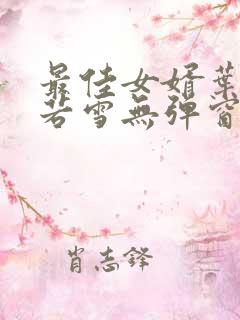 最佳女婿葉
若雪無彈窗
肖志鋒